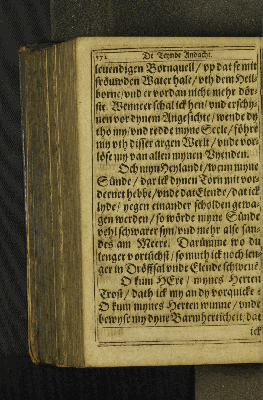 172 De Teynde Andacht.
leuendigen Bornquell / vp dat se mit
fröuwden Water hale / vth dem Heil-
borne / vnd er vordan nicht mehr dör-
ste. Wenneer schal ick hen / vnd erschy-
nen vor dynem Angesichte / wende dy
tho my / vnd redde myne Seele / föhre
my vth disser argen Werlt / vnde vor-
löse my van allen mynen Vyenden.
Och myn Heylandt / wenn myne
Sünde / dar ick dynen Torn mit vor-
deenet hebbe / vnde dat Elende / dat ick
lyde / yegen einander scholden gewa-
gen werden / so wörde myne Sünde
vehl schwarer syn / vnd mehr alse san-
des am Meere. Darümme wo du
lenger vortüchst / so muth ick noch len-
ger in Dröffsal vnde Elende schweue.
O kum HEre / mynes Herten
Trost / dath ick my an dy vorquicke:
O kum mynes Herten wunne / vnde
bewyse my dyne Barmherticheit / dat
ick